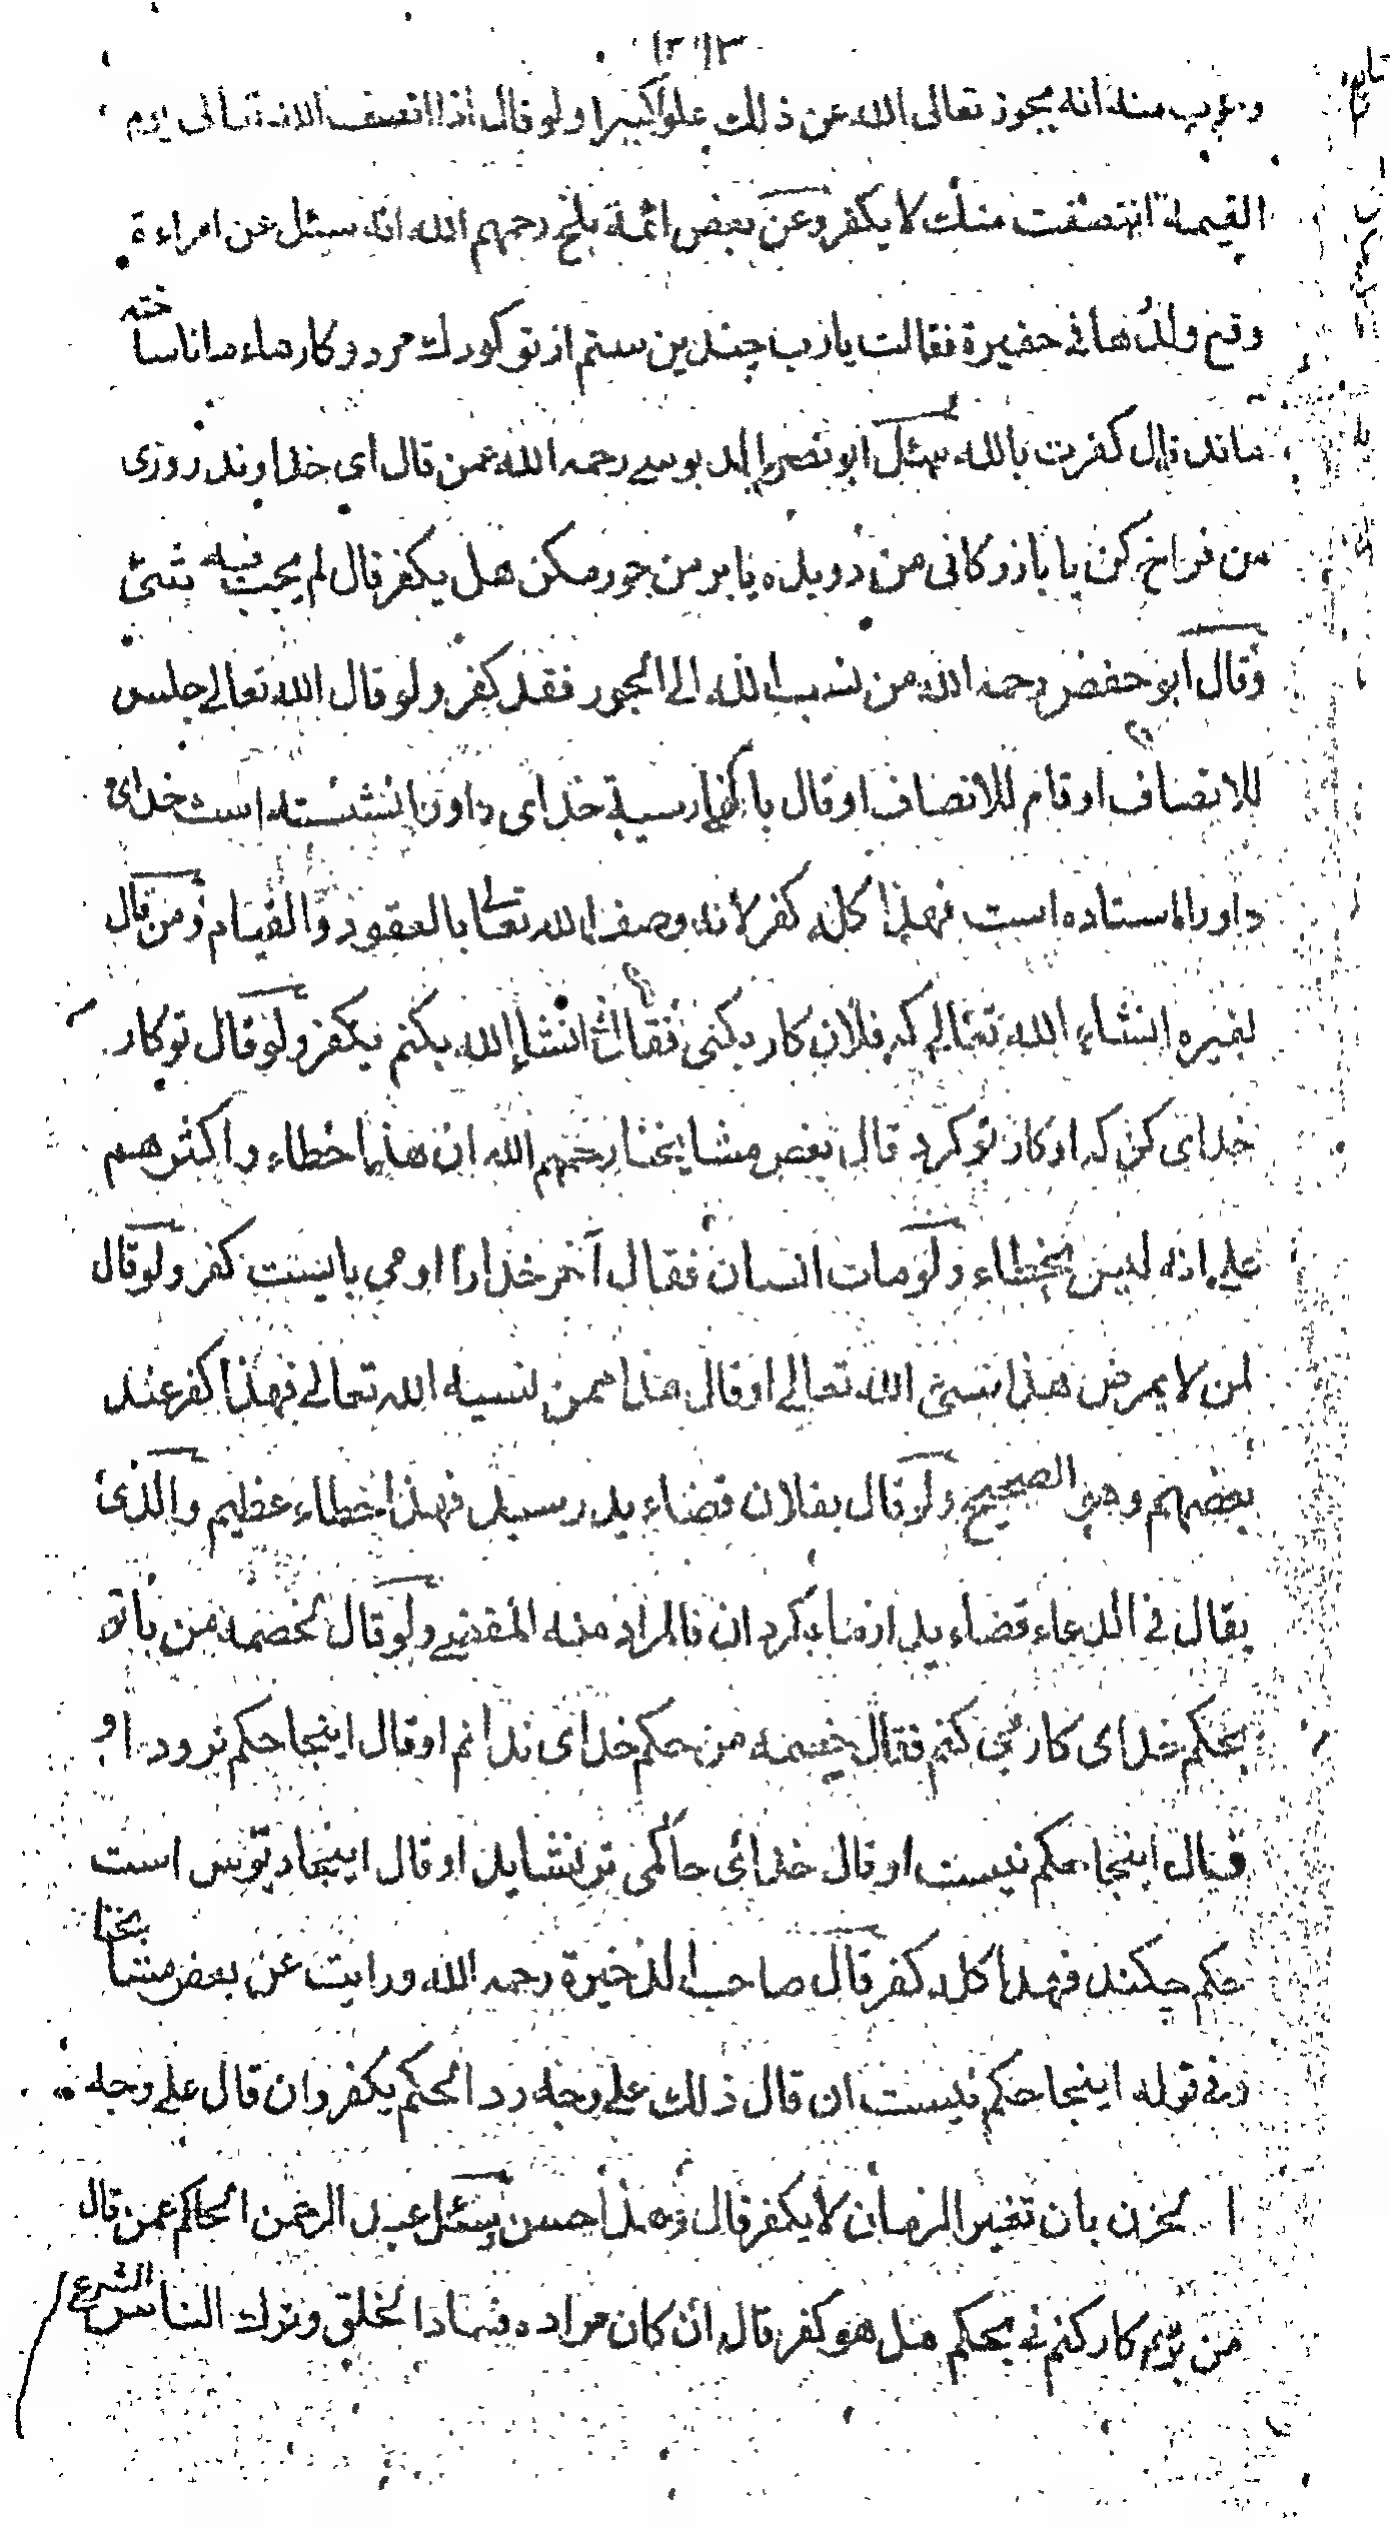 وعرب منه انه يجوز تعالى الله عن ذلك علوا كبيرا ولو قال اذا انصف الله تعالى يوم
القيمة انتصفت منك لا يكفر وعن بعض ائمة بلخ رحمهم الله انه سئل عن امراءة
وقع ولدها في حفيرة فقالت يا رب چندين ستم از تو كودك مردو كارهاء ما ناساخته
ماند قال كفرت بالله سئل ابو نصر الدبوسے رحمه الله عمن قال اى خداوند روزى
من فراخ كن يا بازركانى من دويده يا بر من جور مكن هل يكفر قال لم يجب فيه بشئ
وقال ابو حفص رحمه الله من نسب الله الى الجور فقد كفر ولو قال الله تعالے جلس
للانصاف او قام للانصاف او قال بالفارسية خداى داورا نشسته است خداى
داورا استاده است فهذا كله كفر لانه وصف الله تعالى بالعقود والقيام ومن قال
لغيره انشاء الله تعالے كه فلان كار بكنى فقال انشا الله بكنم يكفر ولو قال تو كار
خداى كن كه او كار تو كرد قال بعض مشايخنا رحمهم الله ان هذا خطاء واكثرهم
علے انه ليس بخطاء ولو مات انسان فقال آخر خدارا او مى بايست كفر ولو قال
لمن لا يمرض هذا نسئ الله تعالے او قال هذا ممن نسيه الله تعالے فهذا كفر عند
بعضهم وهو الصحيح ولو قال بفلان قضاء بد رسيد فهذا خطاء عظيم والذى
يقال فى الدعاء قضاء بد از ما بكردان فالمراد منه المقضے ولو قال لخصمه من با تو
بحكم خداى كار مى كنم فقال خصمه من حكم خداى ندانم او قال اينجا حكم نرود او
قال اينجا حكم نيست او قال خداى حاكمى نشايد او قال اينجا دبوس است
حكم چكند فهذا كله كفر قال صاحب الذخيرة رحمه الله ورايت عن بعض مشايخنا
ان فى قوله اينجا حكم نيست ان قال ذلك علے وجه رد الحكم يكفر وان قال علے وجه
ا لحزن بان تغير الزمان لا يكفر قال وهذا احسن وسئل عبد الرحمن الحاكم عمن قال
من برسم كار كنم نے بحكم هل هو كفر قال ان كان مراده فساد الخلق وترك الناس الشرع